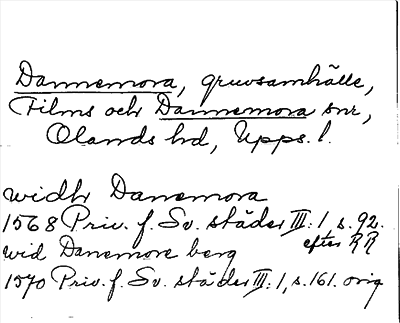 Dannemora, gruvsamhälle,
Films och Dannemora snr,
Olands hd, Upps. l.
widh Danemora
1568 Priv. f. Sv. städer III: 1, s. 92.
efter RR
wid Danemore berg
1570 Priv. f. Sv. städer III: 1, s. 161. orig